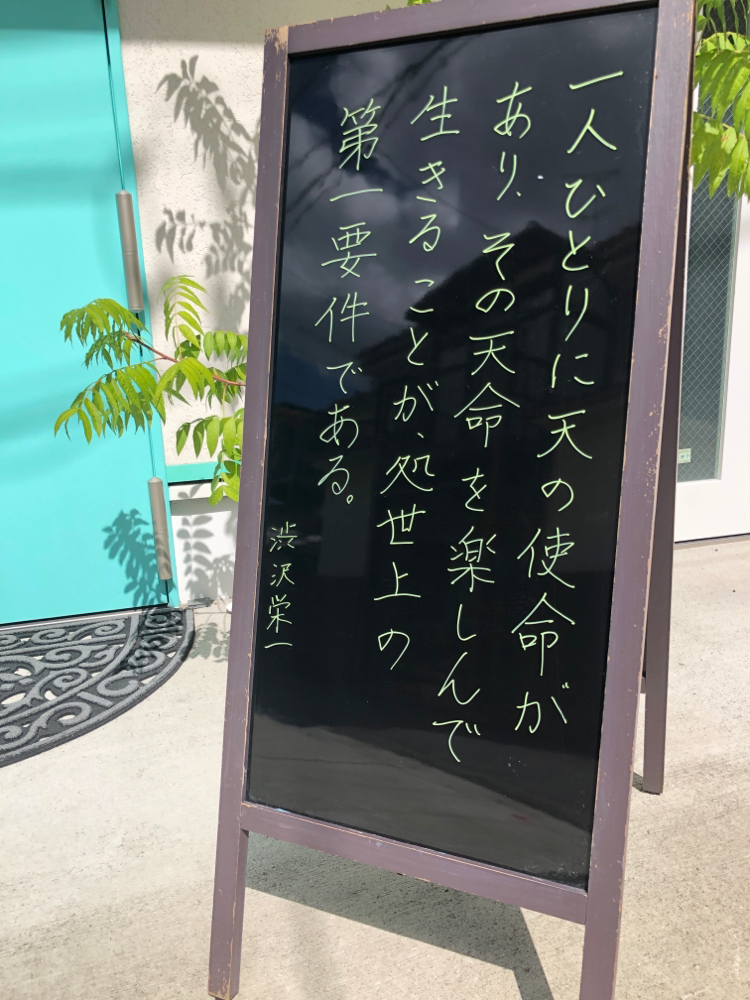 一人ひとりに天の使命が
あり、その天命を楽しんで
生きることが、処世上の
第一要件である。
渋沢栄一